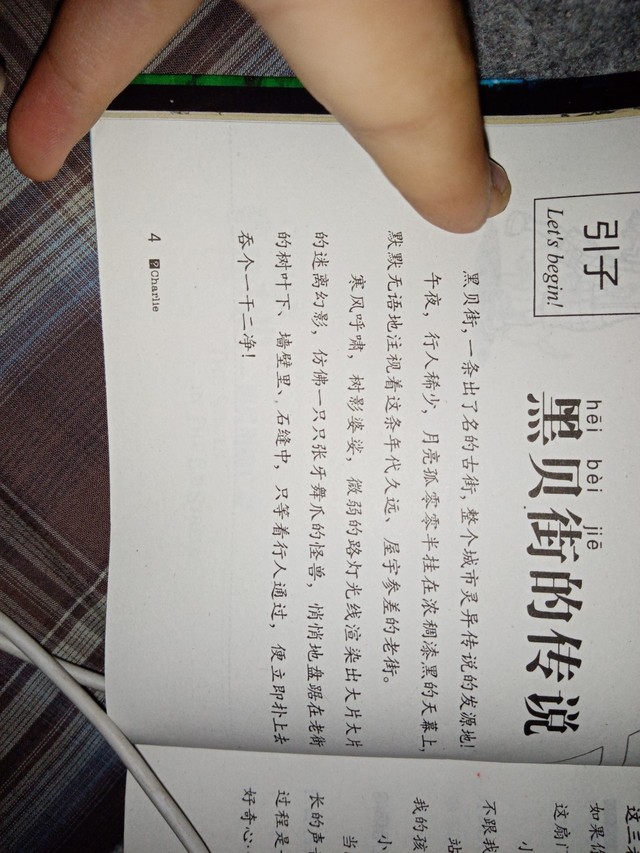 引子
Let's begin!
hēi bèi jiē
黑贝街的传说
黑贝街,一条出了名的古街,整个城市灵异传说的发源地!
午夜，行人稀少，月亮孤零零半挂在浓稠漆黑的天幕上，
默默无语地注视着这条年代久远、屋宇参差的老街。
寒风呼啸，树影婆娑，微弱的路灯光线渲染出大片大片
的迷离幻影，仿佛一只只张牙舞爪的怪兽，悄悄地盘踞在老街
的树叶下、墙壁里、石缝中，只等着行人通过，便立即扑上去
吞个一干二净！
4 Charlie
这三
如果你
这扇门
小
不跟我
站
我的孩
小
当
长的声
过程是
好奇心